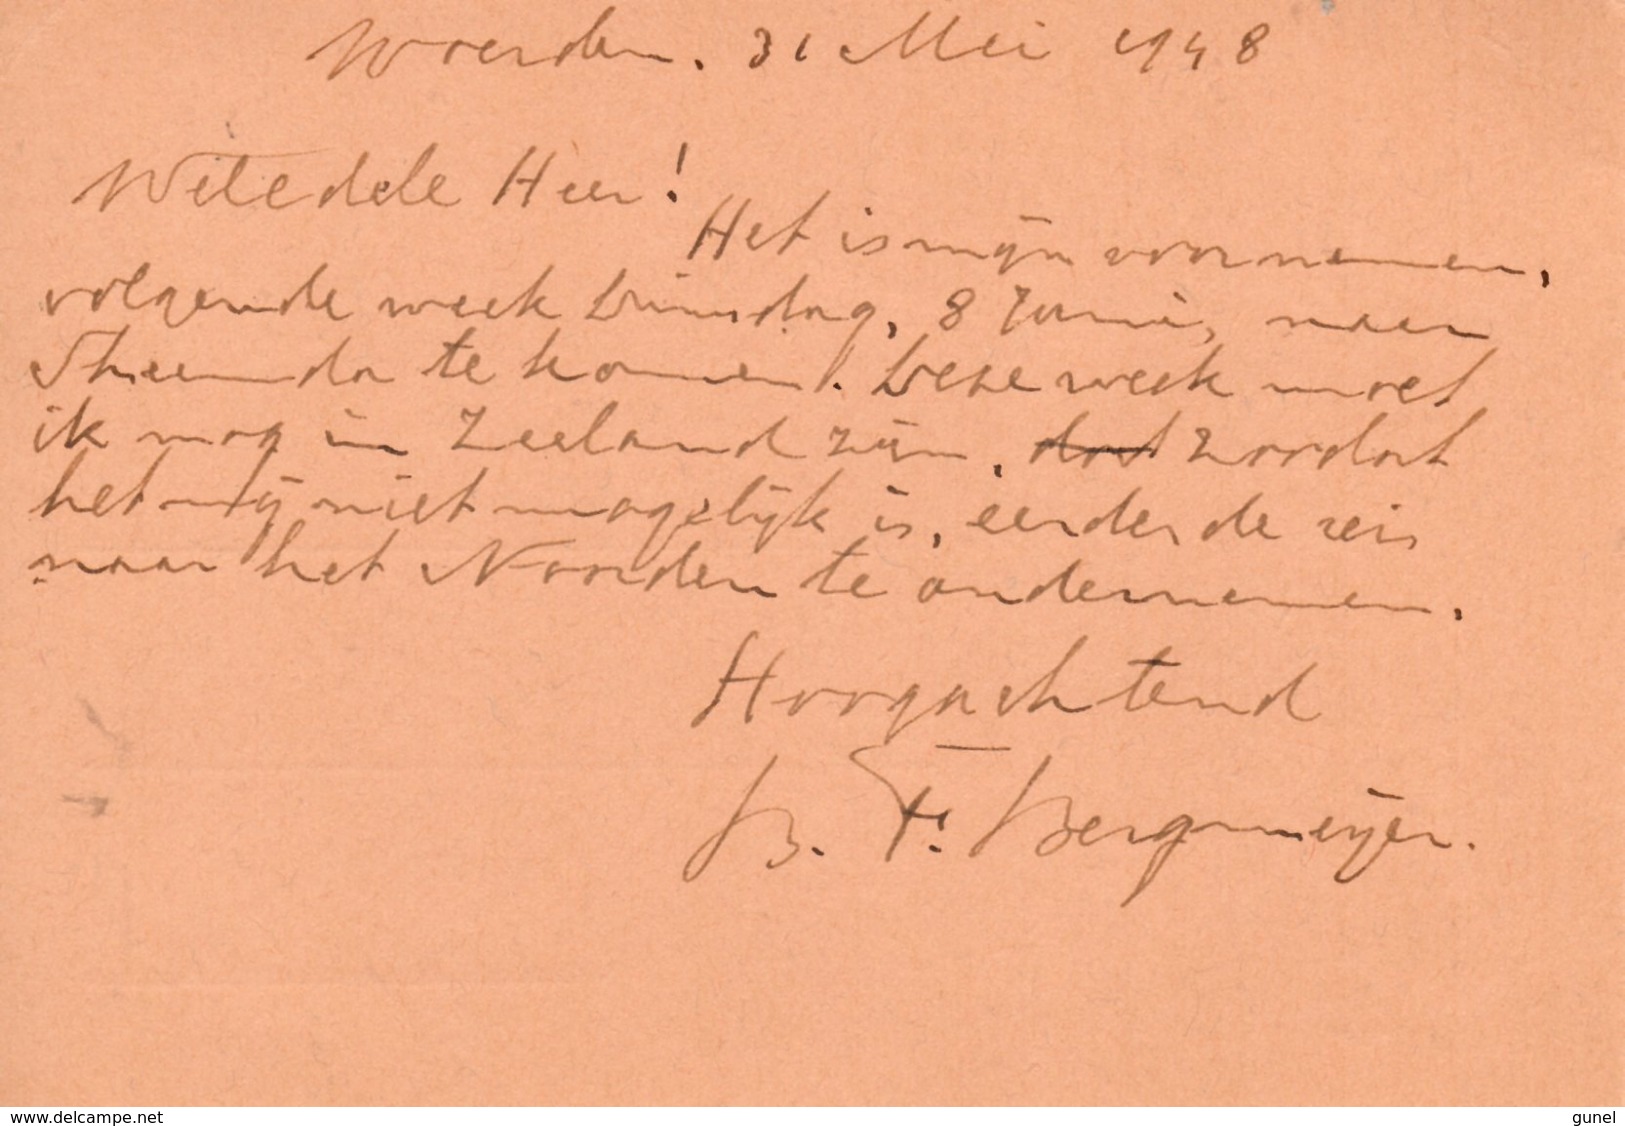 Woerden. 31 Mei 1948
WelEdele Heer!
Het is mijn voornemen,
volgende week Dinsdag, 8 Juni, naar
te komen. Deze week moet
ik nog in Zeeland zijn, dat zoodat
het mij niet mogelijk is, eerder de reis
naar het Noorden te ondernemen.
Hoogachtend
B. F. Bergmeijer.
www.delcampe.net
gunel